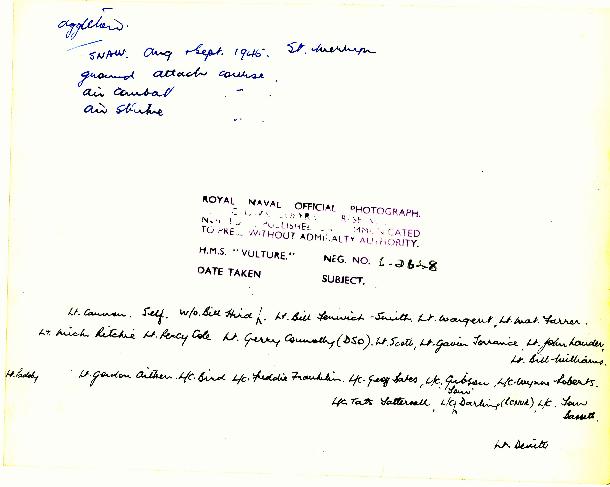 appleton.
SNAW. Aug & Sept. 1945. St. Merryn
ground attack course.
air combat "
air strike "
ROYAL NAVAL OFFICIAL PHOTOGRAPH.
NOT TO PUBLISHED COMMUNICATED
TO PRE WITHOUT ADMIRALTY AUTHORITY.
H.M.S. "VULTURE." NEG. NO. L-2648
DATE TAKEN SUBJECT.
Lt. Cannon. Self. W/O. Bill Lt. Bill Fenwick-Smith, Lt. Wargent, Lt. Mat. Farrer.
Lt. Mick Ritchie Lt. Percy Cole Lt. Gerry Connolly (DSO). Lt. Scott, Lt. Gavin Torrance, Lt. John Lauder,
Lt. Bill Williams.
Lt. Paddy Lt. Gordon Aitken. L/c. Bird L/c. Freddie Franklin. L/c. Geoff Bates, L/c. Gibson, L/c. Wynne-Roberts.
L/c. Tats Tattersall, L/c. "Tom" Darling (RCNVR), L/c. Tom
Bassett.
Lt. Dewitt